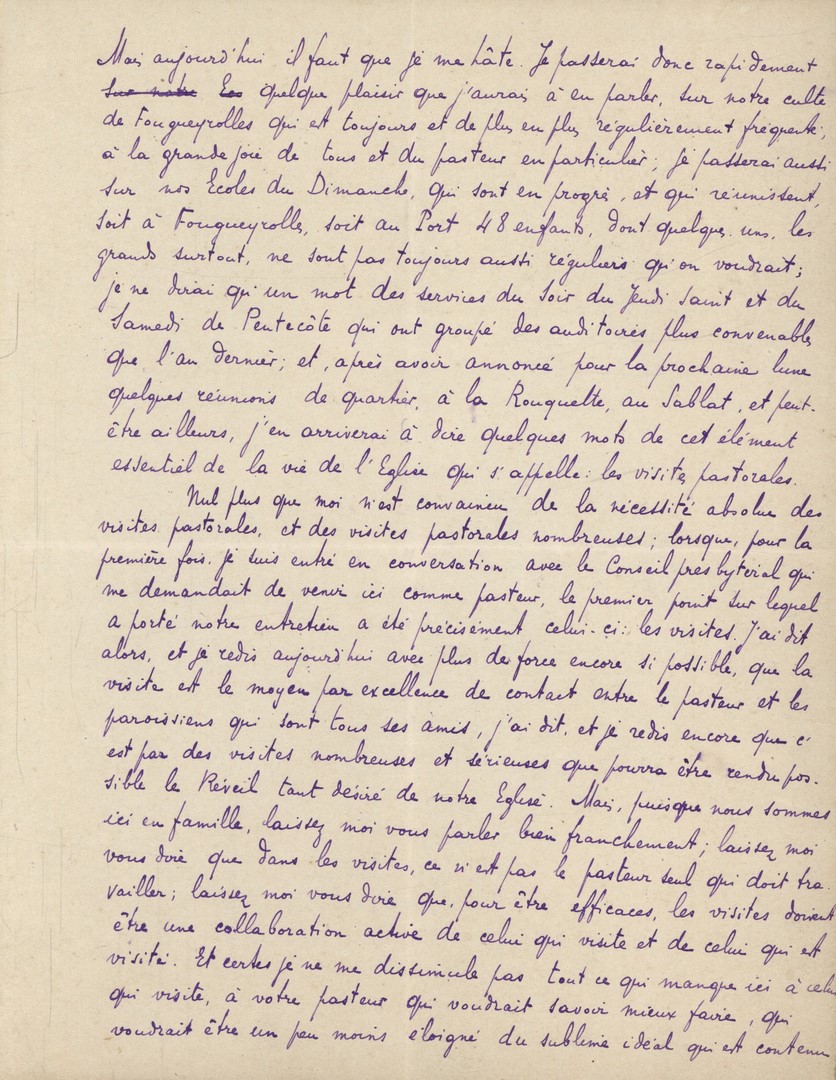 Mais aujourd'hui il faut que je me hâte. Je passerai donc rapidement
sur notre Ec quelque plaisir que j'aurais à en parler, sur notre culte
de Fougueyrolles qui est toujours et de plus en plus régulièrement fréquenté,
à la grande joie de tous et du pasteur en particulier; je passerai aussi
sur nos Ecoles du Dimanche, qui sont en progrès, et qui réunissent,
soit à Fougueyrolles, soit au Port 48 enfants, dont quelques uns, les
grands surtout, ne sont pas toujours aussi réguliers qu'on voudrait;
je ne dirai qu'un mot des services du Soir du Jeudi Saint et du
Samedi de Pentecôte qui ont groupé des auditoires plus convenables
que l'an dernier; et, après avoir annoncé pour la prochaine lune
quelques réunions de quartier, à la Rouquette, au Sablat, et peut-
être ailleurs, j'en arriverai à dire quelques mots de cet élément
essentiel de la vie de l'Eglise qui s'appelle: les visites pastorales.
Nul plus que moi n'est convaincu de la nécessité absolue des
visites pastorales, et des visites pastorales nombreuses; lorsque, pour la
première fois, je suis entré en conversation avec le Conseil presbytéral qui
me demandait de venir ici comme pasteur, le premier point sur lequel
a porté notre entretien a été précisément celui-ci: les visites. J'ai dit
alors, et je redis aujourd'hui avec plus de force encore si possible, que la
visite est le moyen par excellence de contact entre le pasteur et les
paroissiens qui sont tous ses amis, j'ai dit, et je redis encore que c'
est par des visites nombreuses et sérieuses que pourra être rendu pos-
sible le Réveil tant désiré de notre Eglise. Mais, puisque nous sommes
ici en famille, laissez moi vous parler bien franchement; laissez moi
vous dire que dans les visites, ce n'est pas le pasteur seul qui doit tra-
vailler; laissez moi vous dire que, pour être efficaces, les visites doivent
être une collaboration active de celui qui visite et de celui qui est
visité. Et certes je ne me dissimule pas tout ce qui manque ici à celui
qui visite, à votre pasteur qui voudrait savoir mieux faire, qui
voudrait être un peu moins éloigné du sublime idéal qui est contenu